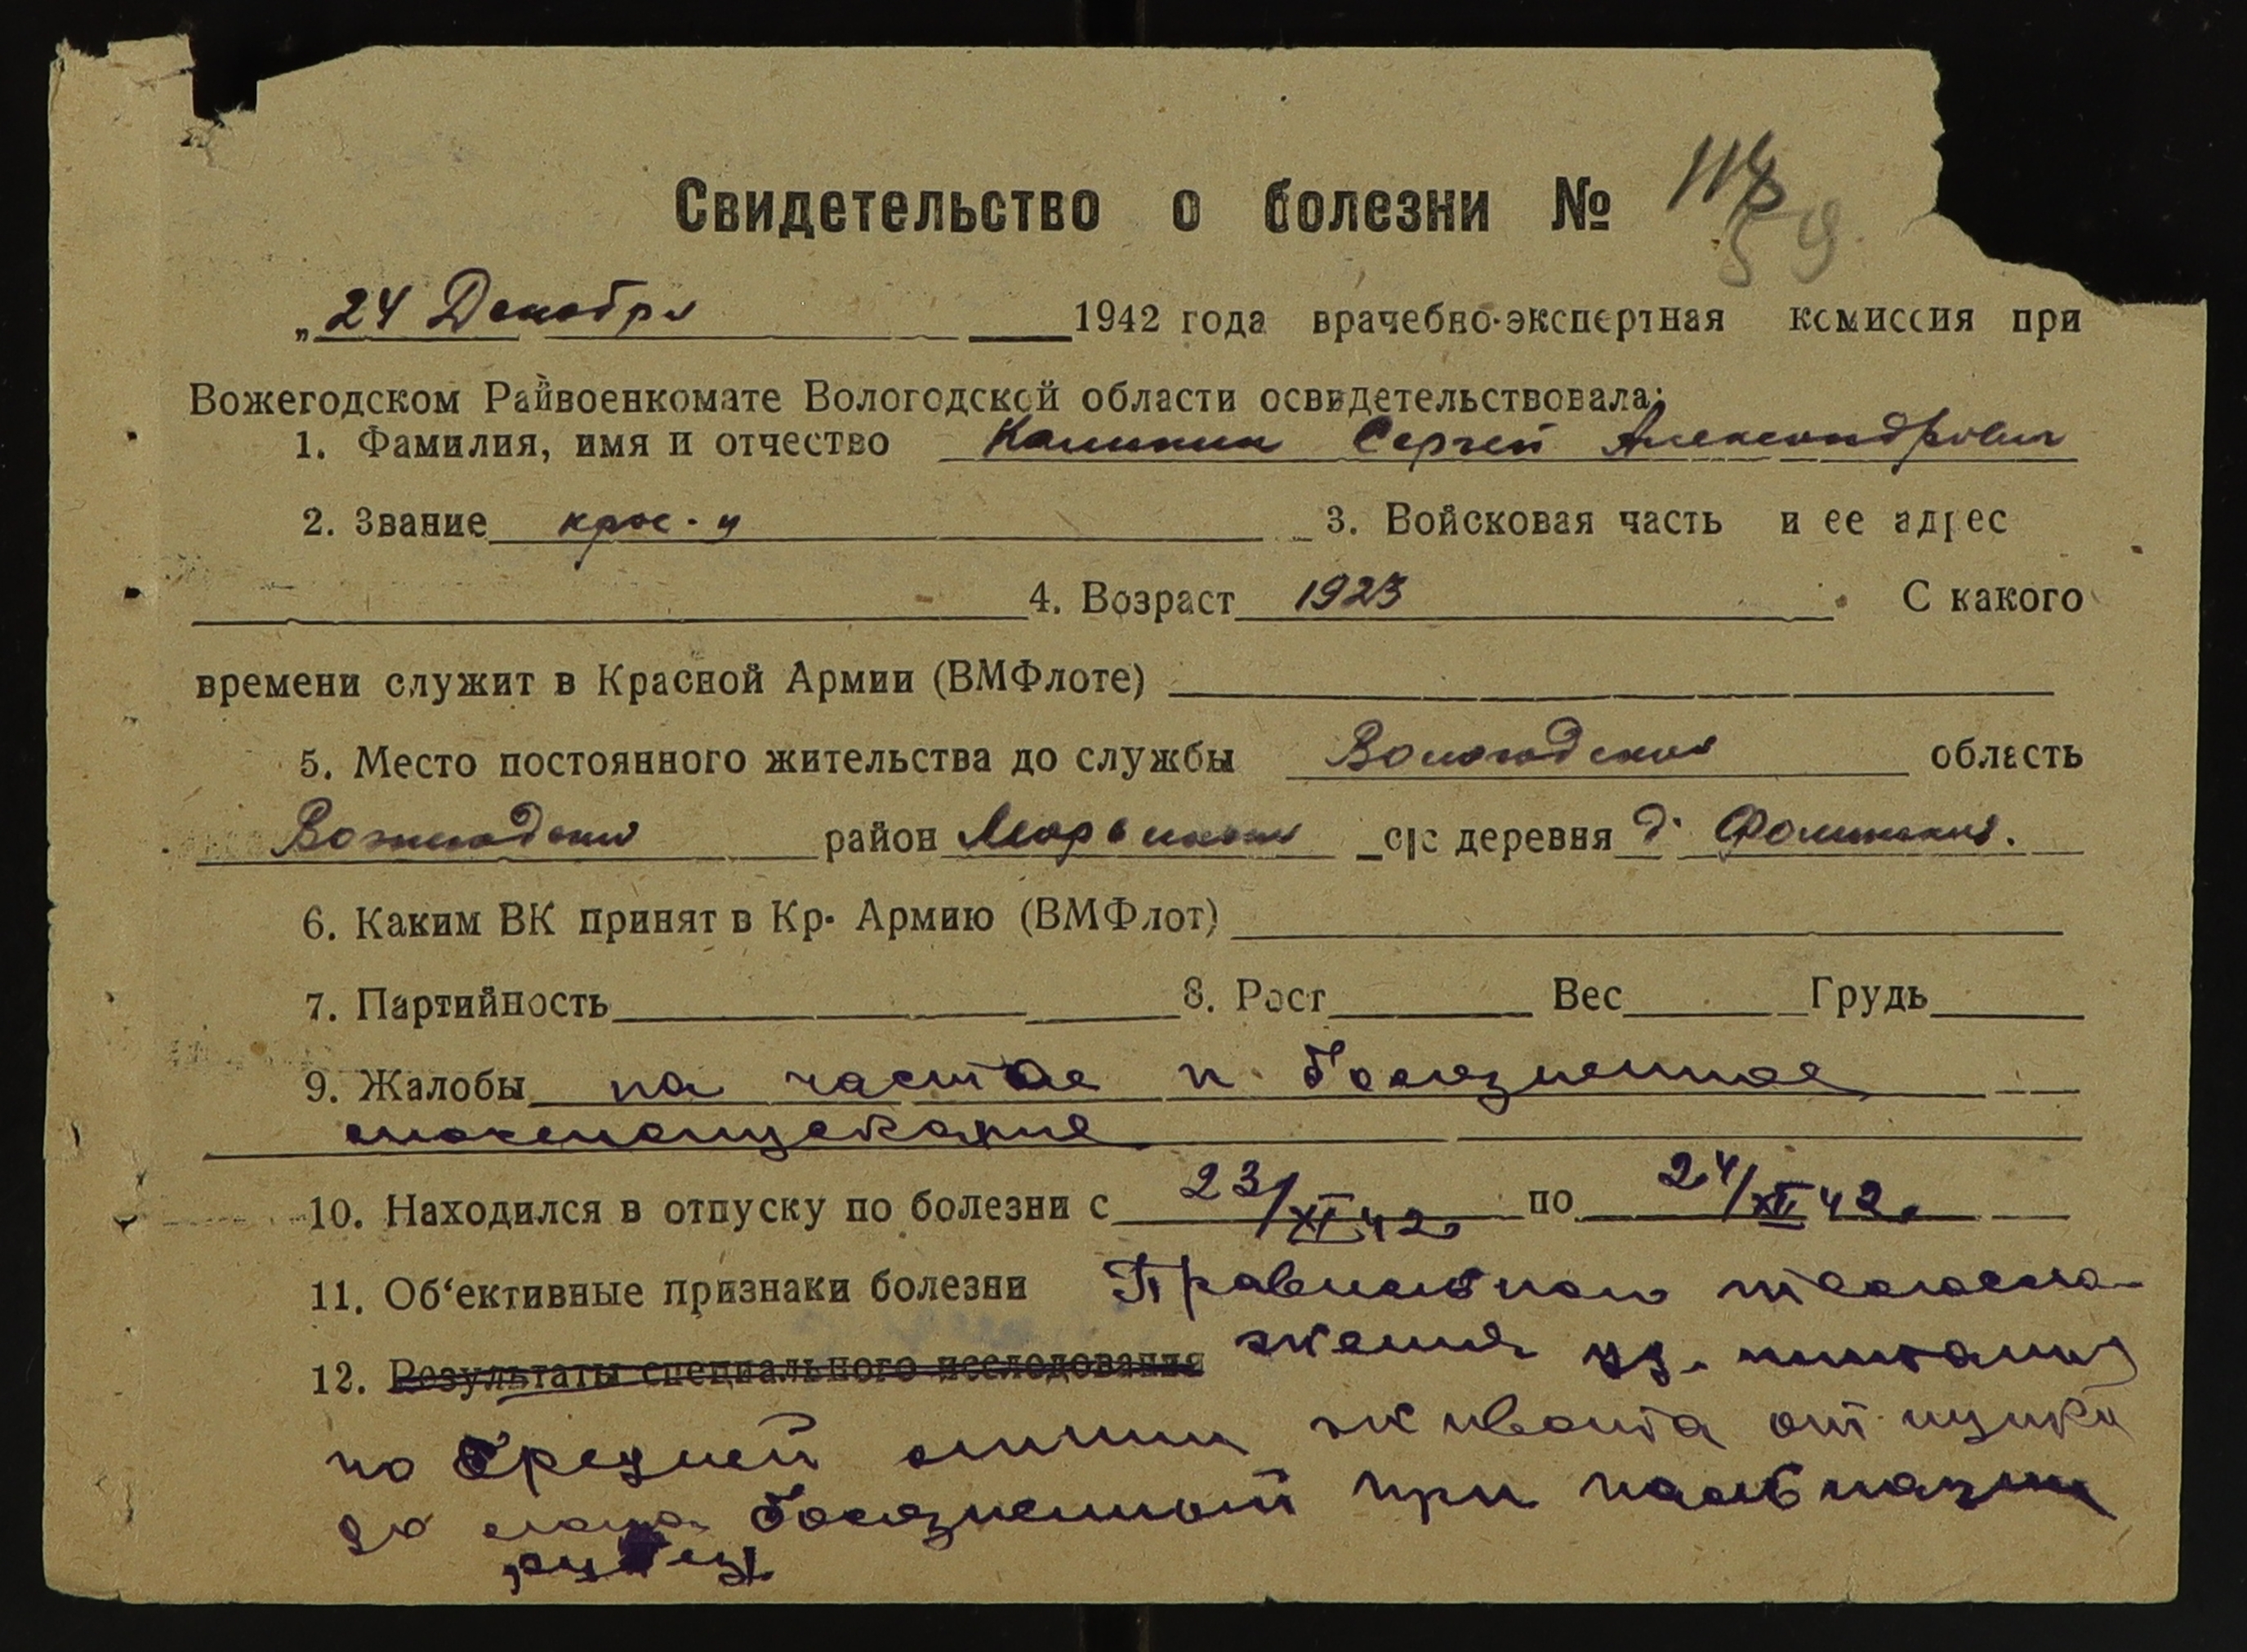 Свидетельство о болезни №
59
„24 Декабря 1942 года врачебно-экспертная комиссия при
Вожегодском Райвоенкомате Вологодской области освидетельствовала:
1. Фамилия, имя и отчество Калинин Сергей Александрович
2. Звание крас-ц 3. Войсковая часть и ее адрес
4. Возраст 1923 С какого
времени служит в Красной Армии (ВМФлоте)
5. Место постоянного жительства до службы Вологодская область
Вожегодский район с|с деревня д.
6. Каким ВК принят в Кр. Армию (ВМФлот)
7. Партийность 8. Рост Вес Грудь
9. Жалобы на частое и болезненное
мочеиспускание
10. Находился в отпуску по болезни с 23/XI 42 по 24/XII 42
11. Об‘ективные признаки болезни Правильного телосло-
12. Результаты специального исследования жения уд. питания
по средней линии живота от пупка
до лона болезненный при пальпации
рубец